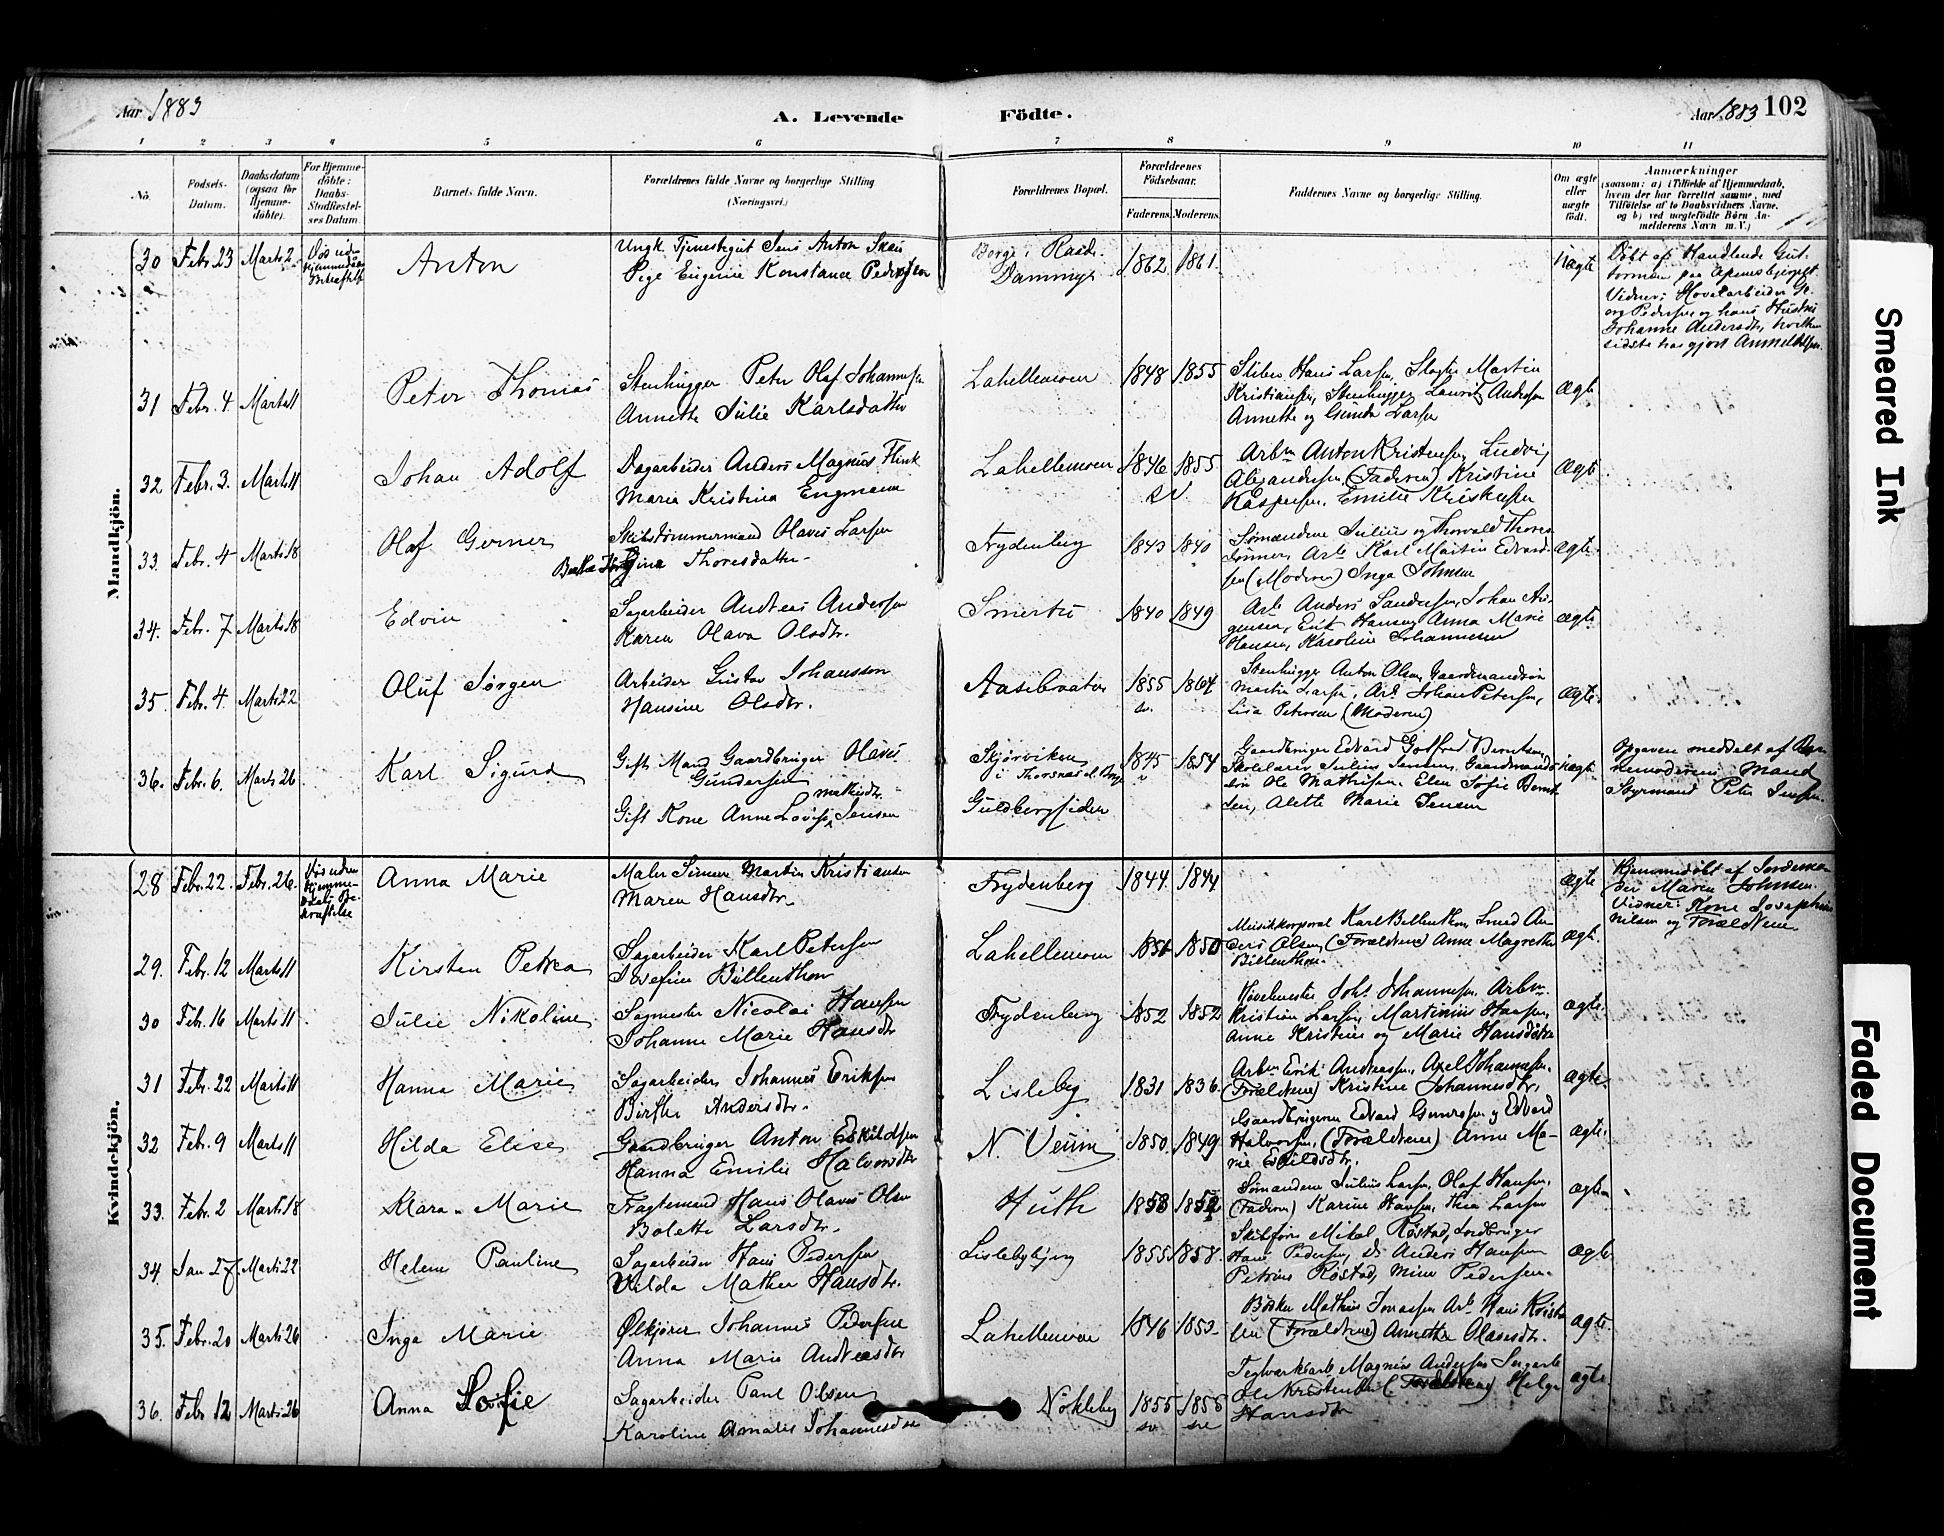 Aar 1883
A. Levende
Födte.
Aar 1883 102
1 2 3 4 5 6 7 8 9 10 11
No.
Födsels-
Datum.
Daabsdatum
(ogsaa for
Hjemme-
döbte).
For Hjemme-
döbte:
Daabs-
Stadfæstel-
ses Datum.
Barnets fulde Navn.
Forældrenes fulde Navne og borgerlige Stilling
(Næringsvei.)
Forældrenes Bopæl.
Forældrenes
Födselsaar.
Faderens. Moderens.
Faddernes Navne og borgerlige Stilling.
Om ægte
eller
uægte
födt.
Anmærkninger
(saasom: a) i Tilfælde af Hjemmedaab,
hvem der har forrettet samme, med
Tilföielse af to Daabsvidners Navne,
og b) ved uægtefödte Börn An-
melderens Navn m. V.)
Mandkjön.
30 Febr. 23 Marts 2
Anton
Ungk. Tjenestegut Jens Anton
Pige Eugenie Konstance Pedersen
Borge i Raade.
1862 1861
Uægte
Döbt af Handlende Gut-
tormsen
Vidner: Hövelarbeider Ge-
org Pedersen og hans Hustru
Johanne Andersdtr, hvilken
sidste har gjort Anmeldelsen.
31 Febr. 4 Marts 11
Peter Thomas
Stenhugger Peter Olaf Johannesen
Annette Julie Karlsdatter
Lahellemoen
1848 1855
Sliber Hans Larsen, Slagter Martin
Kristiansen, Stenhugger Laurits Andersen
Annette og Gunda Larsen
Ægte
32 Febr. 3. Marts 11
Johan Adolf
Dagarbeider Anders Magnus Flink
Maria Kristina Engmann
Lahellemoen
1846 1855
sv
Arbm Anton Kristensen, Ludvig
Alexandersen (Faderen) Kristine
Kaspersen, Emilie Kristiansen
Ægte
33. Febr. 4 Marts 18
Olaf Gerner
Skibstömmermand Olaves Larsen
Gina Thoresdatter
Frydenberg
1843 1840
Sömændene Julius og Thorvald Thores-
sönner, Arb. Karl Martin Edvard-
sen (Moderen) Inga Johnsen
ægte
34. Febr. 7 Marts 18
Edvin
Sagarbeider Andreas Andersen
Karen Olava Olsdtr.
Smertu
1840 1849
Arb. Anders Sandersen, Johan
Erik Hansen, Anna Marie
Hansen, Karoline Johannesen
ægte
35. Febr. 4. Marts 22
Oluf Jörgen
Arbeider Gustav Johansson
Hansine Olsdtr.
Aasebraaten
1855 1864
sv.
Stenhugger Anton Olsen, Gaardmandssön
Martin Larsen, Arb. Johan Petersen,
Lisa Petersen (Moderen)
ægte.
36. Febr. 6. Marts 26
Karl Sigurd
Gift Mand Gaardbruger Olaves
Gundersen
Gift Kone Anne Lovise Jensen
Skjærviken
i Thorsnæs
Guldbergsiden
1845 1854
Gaardbruger Edvard Gotfred Berntsen,
Skolelærer Julius Jensen, Gaardmands-
sön Ole Mathisen, Elen Sofie Bernt-
sen, Alette Marie Jensen
uægte
Opgaven meddelt af Bar-
nemoderens Mand
Styrmand Peter Jensen.
Kvindekjön.
28 Febr. 22. Febr. 26.
Hös uden
Hjemme-
daabs Be-
kræftelse
Anna Marie
Maler Simen Martin Kristiansen
Maren Hansdtr.
Frydenberg
1844 1844
ægte
Hjemmedöbt af Jordemo-
der Maren Johnsen
Vidner: Kone Josephine
Nilsen og Forældrene
29. Febr. 12 Marts 11
Kirsten Petra
Sagarbeider Karl Petersen
Josefine Billenthon
Lahellemoen
1851 1850
Musikkorporal Karl Billenthon, Smed An-
ders Olsen, (Forældrene) Anne Magrethe
Billenthon.
ægte.
30 Febr. 16 Marts 11
Julie Nikoline
Sagmester Nicolai Hansen
Johanne Marie Hansdtr
Frydenberg
1852 1852
Hövelmester Johs Johannesen, Arbm.
Kristian Larsen, Martinius Hansen,
Anne Kristine og Marie Hansdötre
ægte.
31 Febr. 22 Marts 11
Hanna Marie
Sagarbeider Johannes Eriksen
Birthe Andersdtr.
Lisleby
1831 1836.
Arbm Erik Andreassen, Axel Johannesen,
(Forældrene) Kristine Johannesdtr.
ægte
32 Febr. 9 Marts 11
Hilda Elise
Gaardbruger Anton Eskildsen
Hanna Emilie Halvorsdtr
N. Veum
1850 1849
Gaardbrugerne Edvard Gunersen og Edvard
Halvorsen, (Forældrene) Anne Ma-
rie Eskildsdtr.
ægte.
33. Febr. 2 Marts 18
Klara Marie
Fragtemand Hans Olaves Olsen
Bolette Larsdtr.
Huth
1853 1852
Sömændene Julius Larsen, Olaf Hansen,
(Faderen) Karine Hansen, Thea Larsen
ægte
34. Jan 27 Marts 22
Helene Pauline
Sagarbeider Hans Pedersen
Hilda Mathea Hansdtr.
Lislebybjerg
1855 1858.
Skibsförer Mikal Röstad, Jordbruger
Hans Pedersen, Anders Hansen
Petrine Röstad, Mina Pedersen.
ægte
35. Febr. 20 Marts 26
Inga Marie
Ölkjörer Johannes Pedersen
Anna Marie Andreasdtr
Lahellemoen
1846 1853
Bödker Mathias Jonassen Arb. Hans Kristian-
sen (Forældrene) Annette Olavesdtr.
ægte.
36. Febr 12 Marts 26
Anna Sofie
Sagarbeider Paul Olsen
Karoline Amalie Johannesdtr
Nökleby
1855 1856
sv
Teglværksarb. Magnus Andersen Sagarb.
Ole Kristensen (Forældrene) Helga
Hansdtr
ægte
Smeared Ink
Faded Document